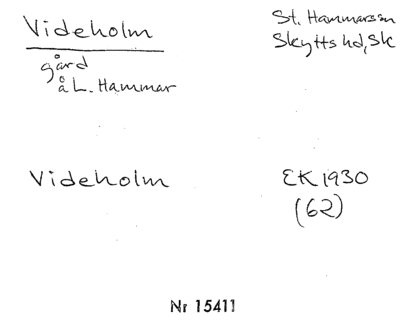 Videholm
St. Hammars sn
Skytts hd, Sk
gård
å L. Hammar
Videholm
EK 1930
(62)
Nr 15411